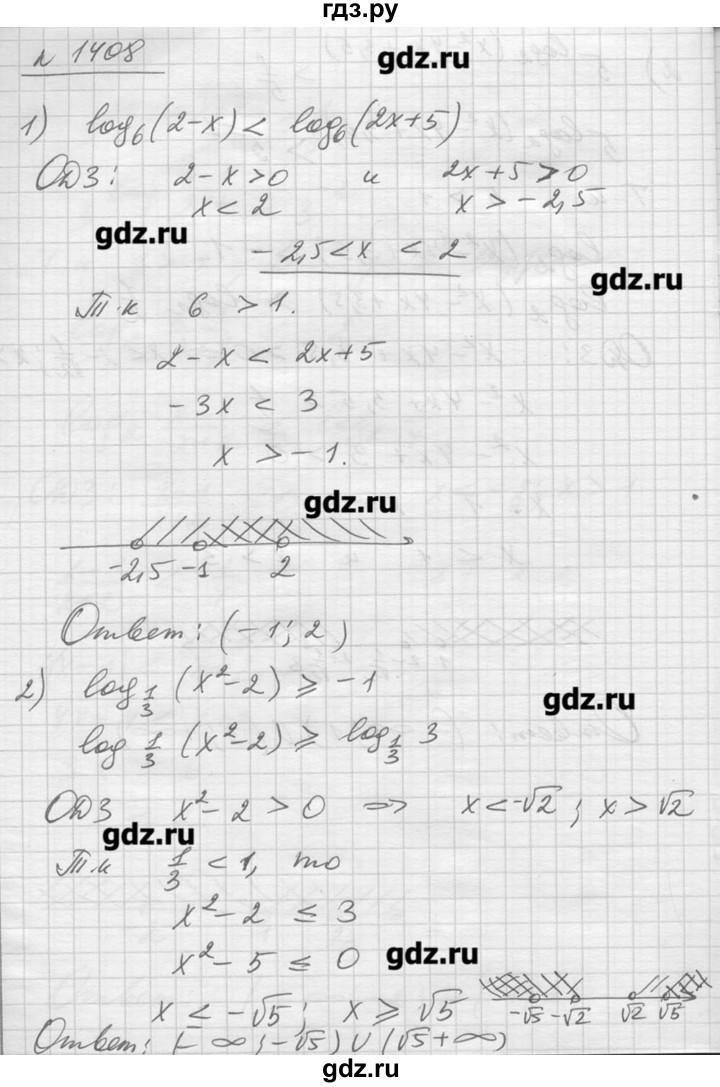 гдз.ру
№ 1408
gdz.ru
1) log₆(2-x) < log₆(2x+5)
ОДЗ: 2-x>0 и 2x+5>0
x<2 x>-2,5
gdz.ru
-2,5<x<2
gdz.ru
Т.к 6 >1.
2-x < 2x+5
-3x < 3
x >-1.
gdz.ru
-2,5 -1 2
Ответ: (-1; 2)
2) log_{1/3} (x²-2) ⩾ -1
gdz.ru
log_{1/3} (x²-2) ⩾ log_{1/3} 3
ОДЗ x²-2>0 => x<-√2; x>√2
gdz.ru
Т.к 1/3 <1, то
x²-2 ≤ 3
x²-5 ≤ 0
gdz.ru
x ≤ -√5; x ⩾ √5
-√5 -√2 √2 √5
Ответ: (-∞; -√5) ∪ (√5 +∞)
gdz.ru